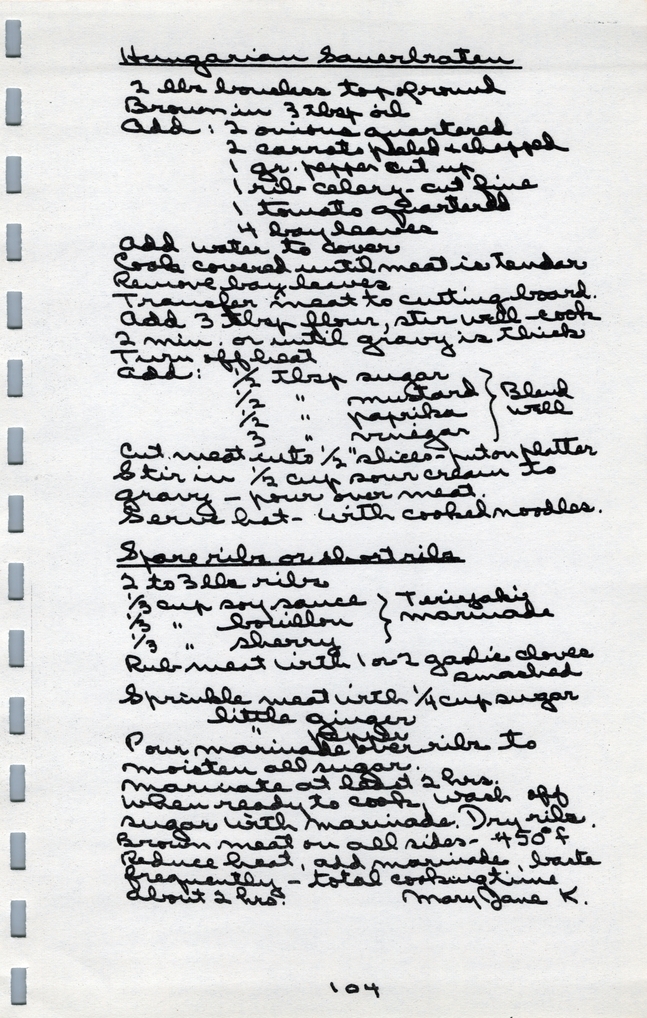 Hungarian Sauerbraten
2 lbs boneless top round
Brown in 3 tbsp oil
Add: 2 onions quartered
2 carrots peeled & chopped
1 gr. pepper cut up
1 rib celery - cut fine
1 tomato quartered
4 bay leaves
Add water to cover
Cook covered until meat is tender
Remove bay leaves
Transfer meat to cutting board.
Add 3 tbsp flour, stir well - cook
2 min. or until gravy is thick
Turn off heat
Add: 1/2 tbsp sugar
1/2 " mustard } Blend
1/2 " paprika well
3 " vinegar
Cut meat into 1/2" slices - put on platter
Stir in 1/3 cup sour cream to
gravy - pour over meat.
Serve hot - with cooked noodles.
Spare ribs or short ribs
2 to 3 lbs ribs
1/3 cup soy sauce } Teriyaki
1/3 " bouillon marinade
1/3 " sherry
Rub meat with 1 or 2 garlic cloves
smashed
Sprinkle meat with 1/4 cup sugar
little ginger
" pepper
Pour marinade over ribs to
moisten all sugar.
Marinate at least 2 hrs.
When ready to cook, wash off
sugar with marinade. Dry ribs.
Brown meat on all sides - 450° f
Reduce heat, add marinade, baste
frequently - total cooking time
about 2 hrs. Mary Jane K.
104